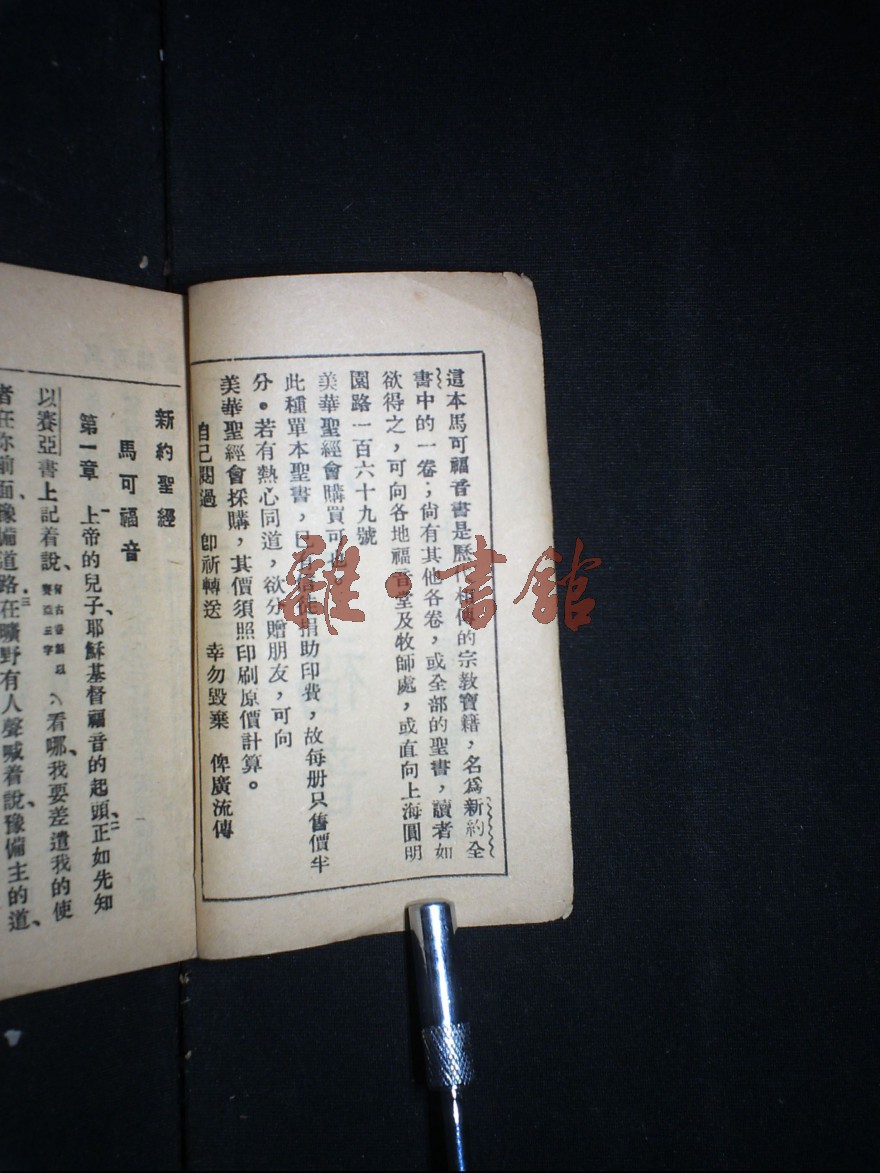 這本馬可福音書是歷代相傳的宗教寶籍，名爲新約全
書中的一卷；尙有其他各卷，或全部的聖書，讀者如
欲得之，可向各地福音堂及牧師處，或直向上海圓明
園路一百六十九號
美華聖經會購買可也。
此種單本聖書，已有信徒捐助印費，故每册只售價半
分。若有熱心同道，欲分贈朋友，可向
美華聖經會採購，其價須照印刷原價計算。
自己閱過 卽祈轉送 幸勿毀棄 俾廣流傳
新約聖經
馬可福音
第一章 一上帝的兒子、耶穌基督福音的起頭、二正如先知
以賽亞書上記着說、有古卷無以賽亞三字看哪、我要差遣我的使
者在你前面、豫備道路、三在曠野有人聲喊着說、豫備主的道、
雜·書館